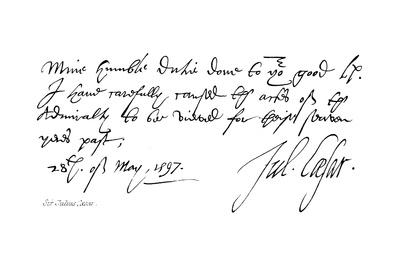 Mine humble dutie done to yor good Lp.
I have carefully caused the actes of the
Admiralty to bee viewed for theise seaven
yeres past,
28th. of May, 1597.
Jul. Cæsar.
Sir Julius Caesar.